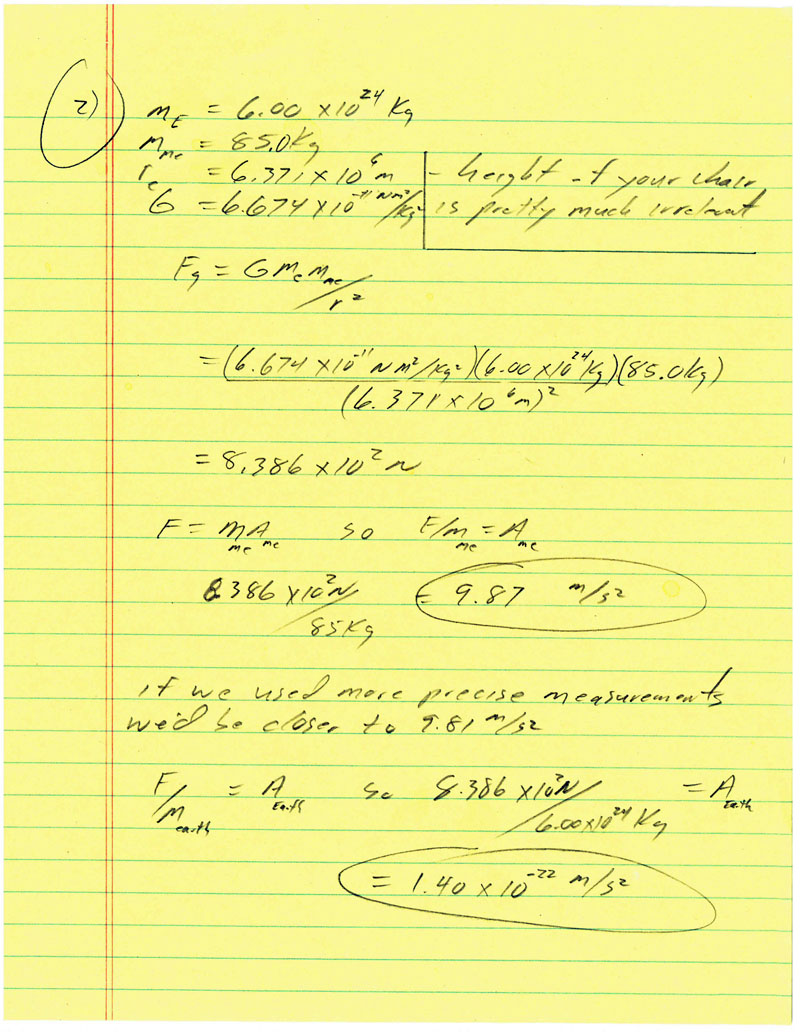 2)
m_E = 6.00 x 10^24 Kg
m_me = 85.0 Kg
r_e = 6.371 x 10^6 m
G = 6.674 x 10^-11 Nm²/Kg²
- height of your chair
is pretty much irrelevant
F_g = G m_e m_me / r²
= (6.674 x 10^-11 N m²/Kg²)(6.00 x 10^24 Kg)(85.0 Kg)
(6.371 x 10^6 m)²
= 8.386 x 10² N
F = m_me A_me so F/m_me = A_me
8.386 x 10² N / 85 Kg = 9.87 m/s²
if we used more precise measurements
we'd be closer to 9.81 m/s²
F/m_earth = A_Earth so 8.386 x 10² N / 6.00 x 10^24 Kg = A_Earth
= 1.40 x 10^-22 m/s²